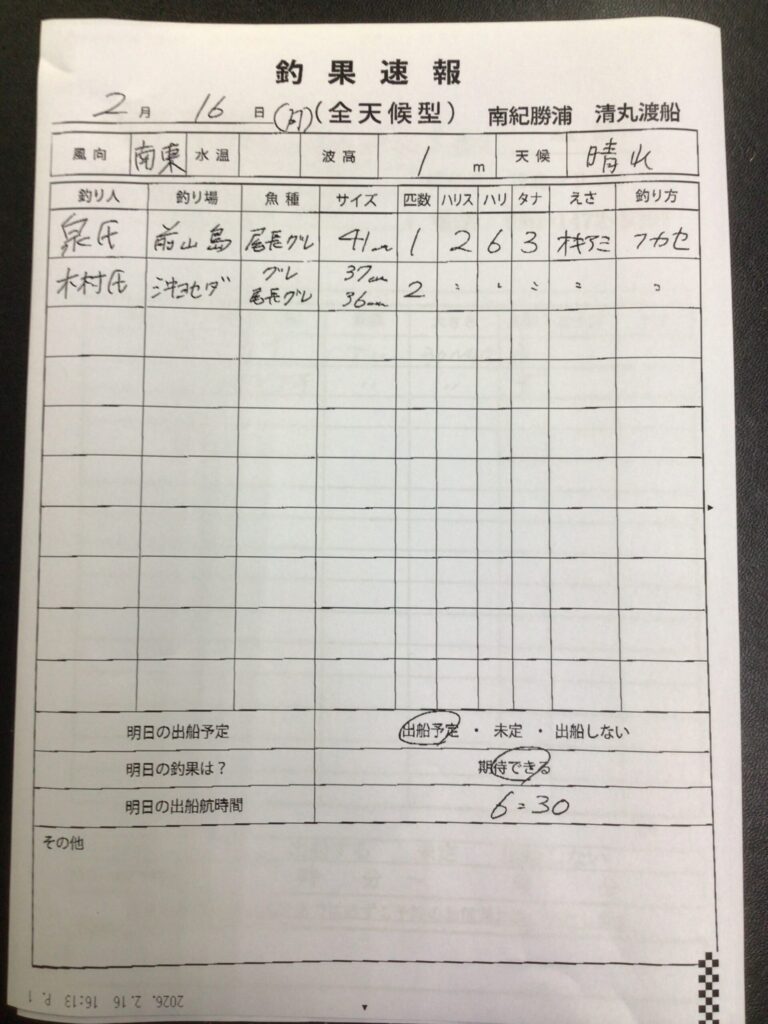 釣果速報
2月 16日(月)(全天候型) 南紀勝浦 清丸渡船
風向 南東 水温 波高 1 m 天候 晴れ
釣り人 釣り場 魚種 サイズ 匹数 ハリス ハリ タナ えさ 釣り方
泉氏 前山島 尾長グレ 41cm 1 2 6 3 オキアミ フカセ
木村氏 グレ 37cm 2 〃 〃 〃 〃 〃
尾長グレ 36cm
明日の出船予定 出船予定 ・ 未定 ・ 出船しない
明日の釣果は? 期待できる
明日の出船航時間 6:30
その他
2026. 2.16 16:13 P. 1